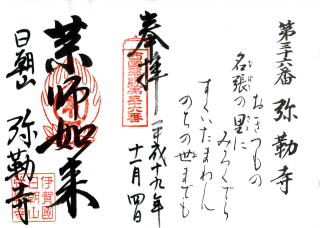 第三十六番 弥勒寺
おきつもの
名張の里に
みろくでら
すくいたまわん
のちの世までも
奉拝
平成十九年
十一月四日
薬師如来
日朝山 弥勒寺
伊賀國
日朝山
弥勒寺